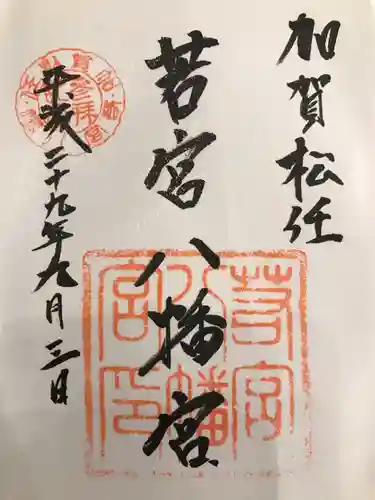 加賀松任
若宮八幡宮
平成二十九年九月三日
若宮八幡宮印